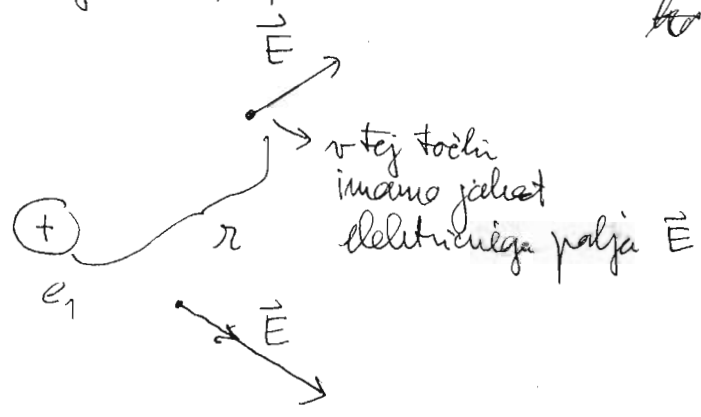 E
v tej točki
imamo jakost
električnega polja E
+
r
e₁
E